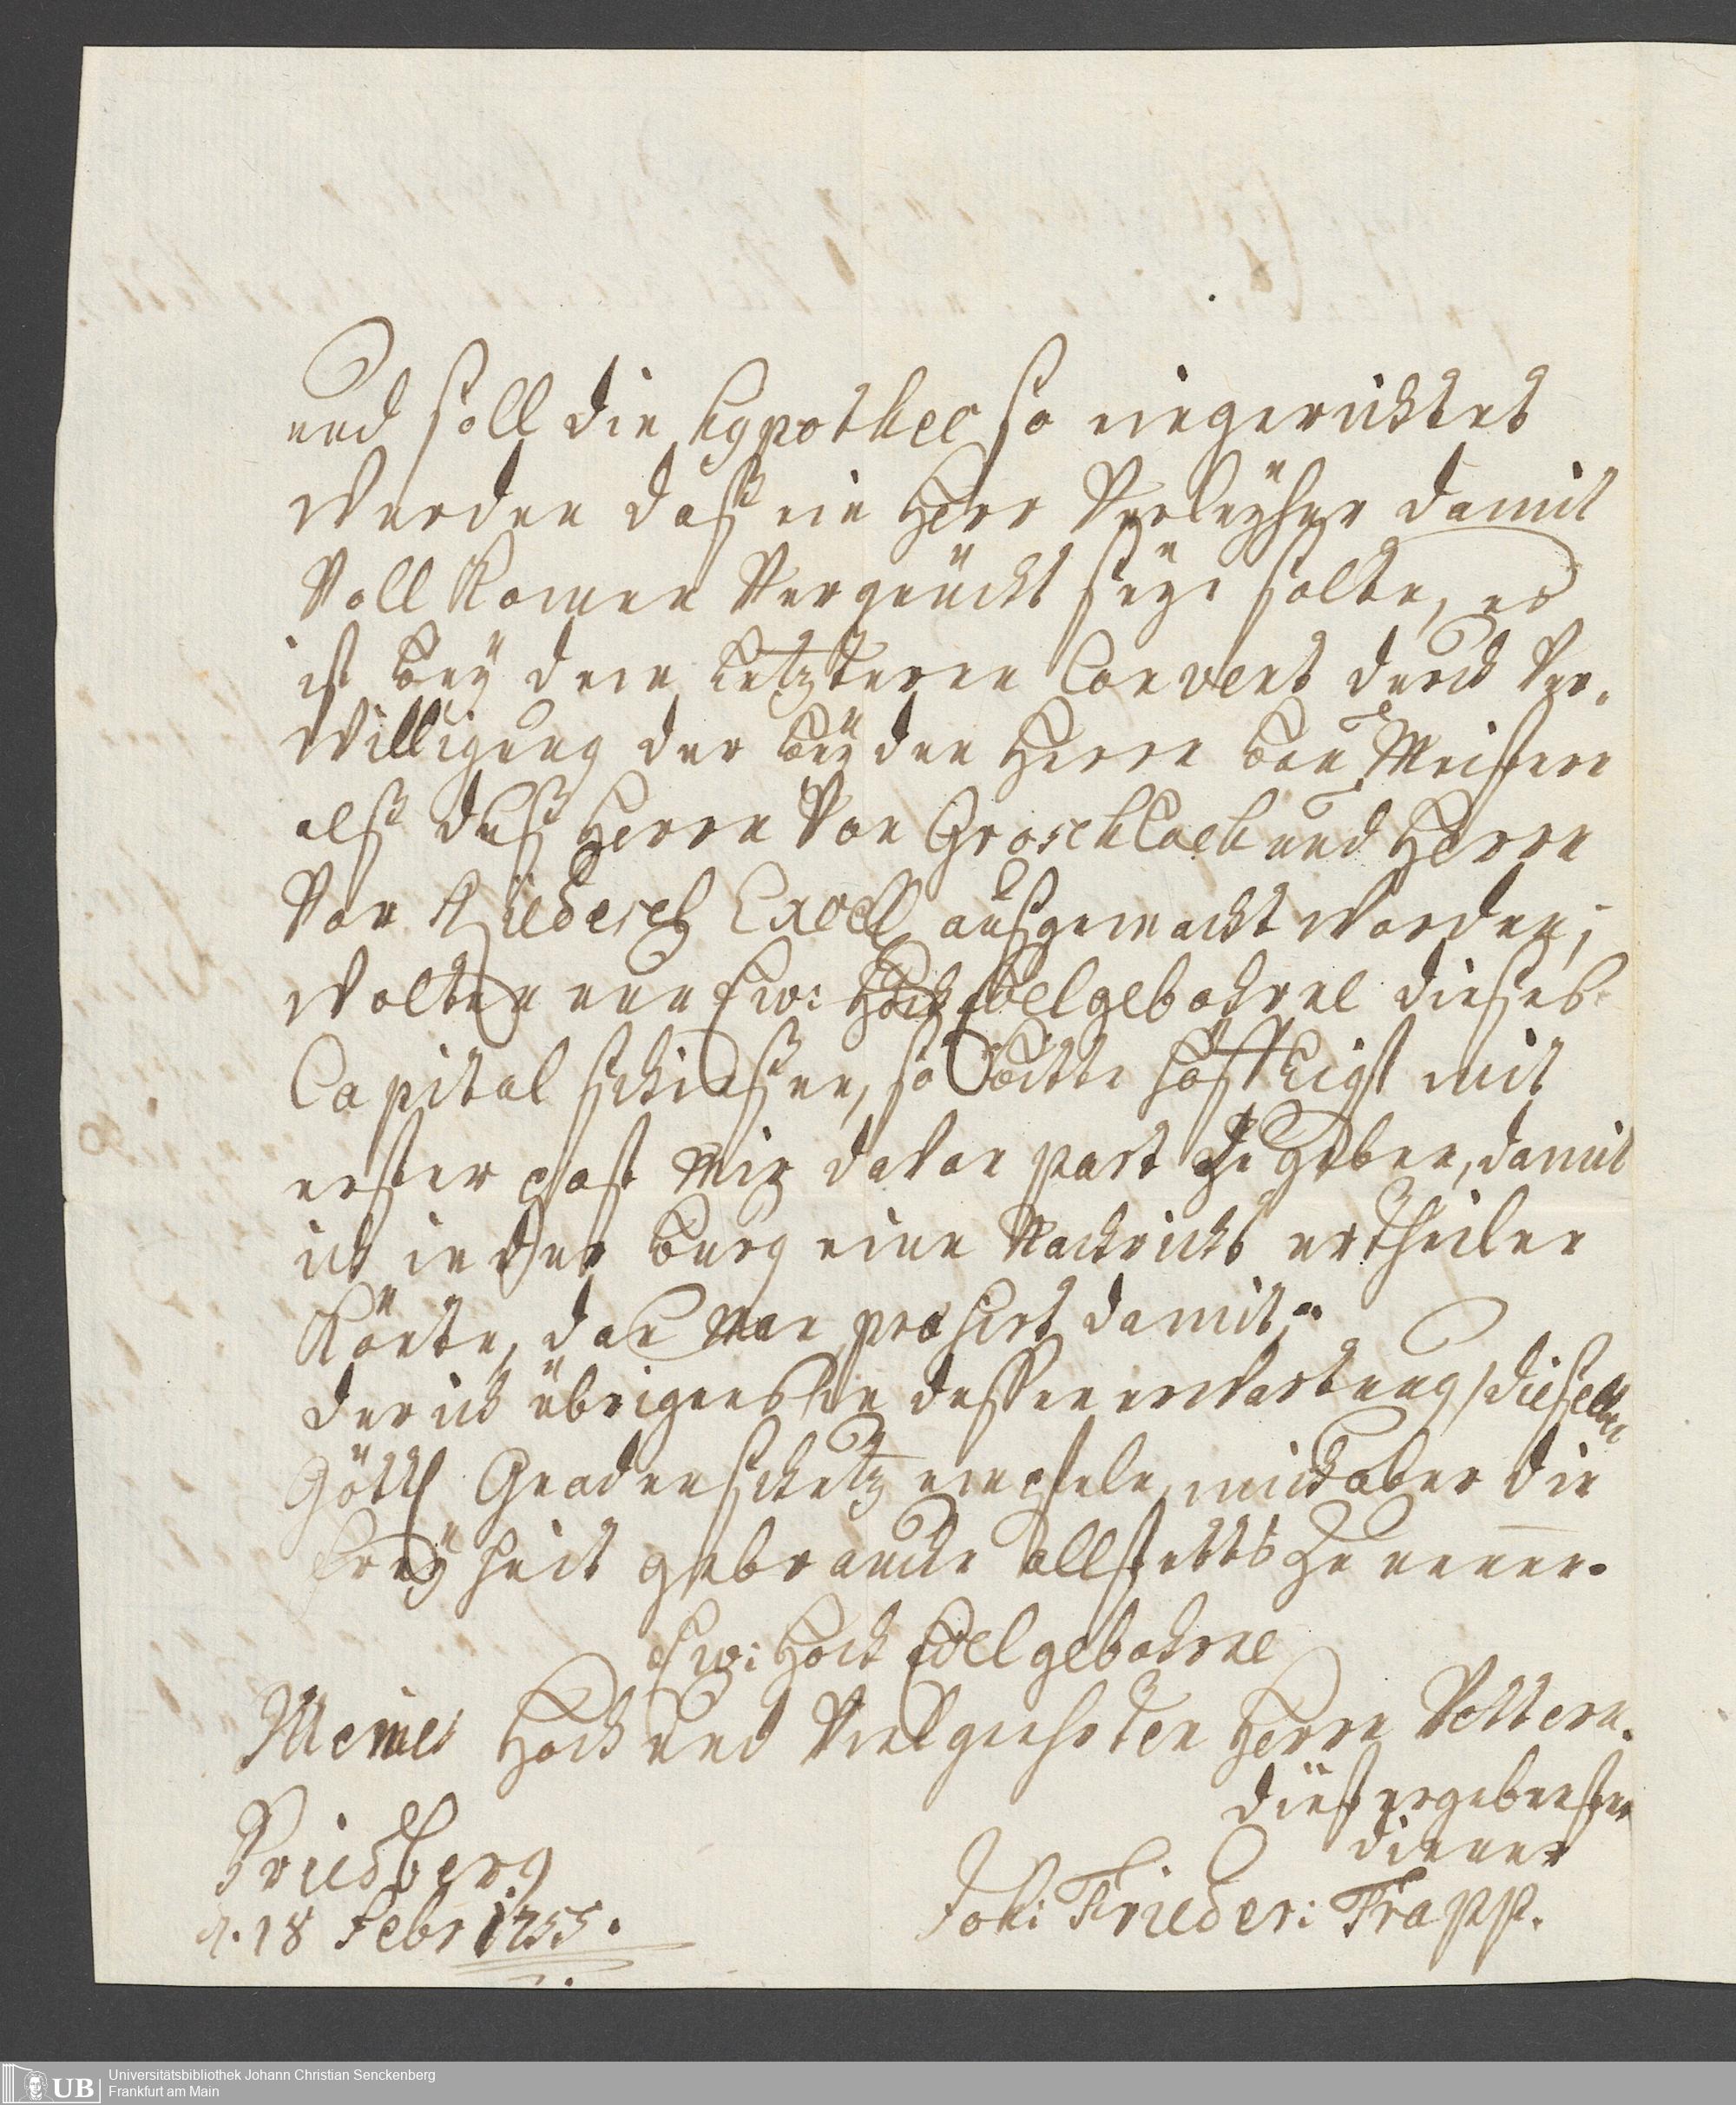 und soll die Hypothec so eingerichtet
werden daß ein Herr Verleyher damit
Voll Komen Vergnückt seyn solte, es
ist bey dem Letzteren Convent durch Ver-
willigung der beyden Herrn bau Meistern
alß deß Herrn Von Groschlaeb und Herrn
Von Riedesel Excell ausgemacht worden;
wolten nun Ew: Hoch Edelgebohrne dieses
Capital schiessen, so bitte höfflichst mit
erster post mir davon part zu geben, damit
ich in der burg eine Nachricht ertheilen
Könte, dan man pressirt damit.
der ich übrigens in dessen erwartung dieselben
Göttl Gnadenschutz empfele, mich aber die
freyheit gebrauche allstetts zu nennen.
Ew: Hoch Edelgebohrne
Meines Hoch und Vielgeehrten Herrn Vettern.
dienst ergebenster
diener
Joh: Frieder: Trapp.
Friedberg
d. 18 Febr 1755.
Universitätsbibliothek Johann Christian Senckenberg
Frankfurt am Main
UB